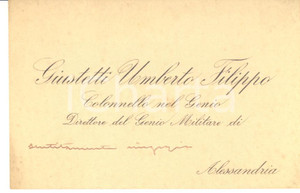 Giustetti Umberto Filippo
Colonnello nel Genio
Direttore del Genio Militare di
Alessandria